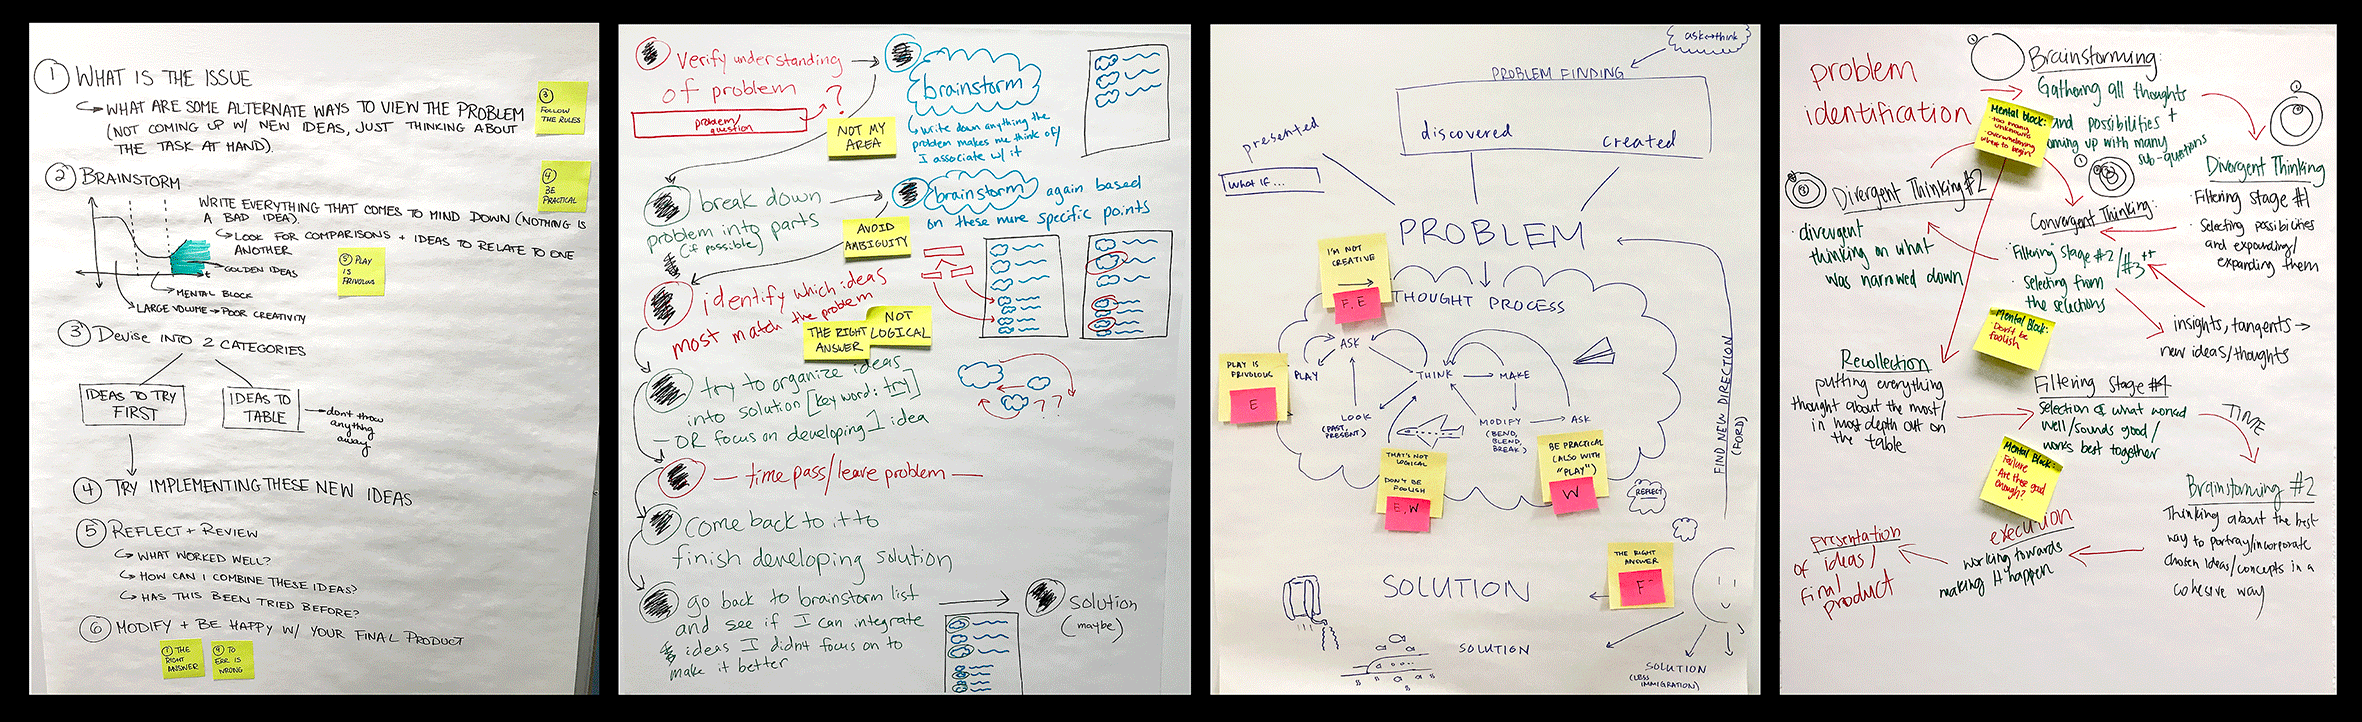 1 WHAT IS THE ISSUE
↳ WHAT ARE SOME ALTERNATE WAYS TO VIEW THE PROBLEM
(NOT COMING UP W/ NEW IDEAS, JUST THINKING ABOUT
THE TASK AT HAND).
3
FOLLOW
THE RULES
2 BRAINSTORM
4
BE
PRACTICAL
WRITE EVERYTHING THAT COMES TO MIND DOWN (NOTHING IS
A BAD IDEA).
↳ LOOK FOR COMPARISONS + IDEAS TO RELATE TO ONE
ANOTHER
t
GOLDEN IDEAS
MENTAL BLOCK
LARGE VOLUME → POOR CREATIVITY
5 PLAY
IS
FRIVOLOUS
3 DEVISE INTO 2 CATEGORIES
IDEAS TO TRY
FIRST
IDEAS TO
TABLE
→ don't throw
anything
away
4 TRY IMPLEMENTING THESE NEW IDEAS
5 REFLECT + REVIEW
↳ WHAT WORKED WELL?
↳ HOW CAN I COMBINE THESE IDEAS?
↳ HAS THIS BEEN TRIED BEFORE?
6 MODIFY + BE HAPPY W/ YOUR FINAL PRODUCT
1 THE
RIGHT
ANSWER
9 TO
ERR IS
WRONG
Verify understanding
of problem
?
problem/
question
NOT MY
AREA
brainstorm
↳ write down anything the
problem makes me think of/
I associate w/ it
break down
problem into parts
(if possible)
AVOID
AMBIGUITY
brainstorm again based
on these more specific points
identify which ideas
most match the problem
THE RIGHT
ANSWER
NOT
LOGICAL
try to organize ideas
into solution [keyword: try]
- OR focus on developing 1 idea
??
- time pass/leave problem -
come back to it to
finish developing solution
go back to brainstorm list
and see if I can integrate
ideas I didnt focus on to
make it better
solution
(maybe)
ask↔think
PROBLEM FINDING
presented
discovered
created
WHAT IF...
PROBLEM
I'M NOT
CREATIVE
F, E
THOUGHT PROCESS
ASK
PLAY IS
FRIVOLOUS
E
PLAY
THINK
MAKE
LOOK
(PAST,
PRESENT)
MODIFY
(BEND,
BLEND,
BREAK)
ASK
THAT'S NOT
LOGICAL
DON'T BE
FOOLISH
E, W
BE PRACTICAL
(ALSO WITH
"PLAY")
W
REFLECT
FIND NEW DIRECTION
(FORD)
THE RIGHT
ANSWER
F
SOLUTION
SOLUTION
SOLUTION
(LESS
IMMIGRATION)
problem
identification
Brainstorming:
Gathering all thoughts
and possibilities +
coming up with many
sub-questions
Mental block:
· too many
unknowns
· overwhelming
where to begin
Divergent Thinking
· Filtering Stage #1
· Selecting possibilities
and expanding/
expanding them
Convergent Thinking:
· "Filtering" Stage #2/#3++
· Selecting from
the selections
Divergent Thinking #2
· divergent
thinking on what
was narrowed down
insights, tangents →
new ideas/thoughts
Mental Block:
Don't be
foolish
Recollection
putting everything
thought about the most/
in most depth out on
the table
Filtering Stage #4
Selection of what worked
well/sounds good/
works best together
TIME
Mental Block:
Failure
· Are these good
enough?
Brainstorming #2
Thinking about the best
way to portray/incorporate
chosen ideas/concepts in a
cohesive way
execution
working towards
making it happen
presentation
of ideas/
final
product